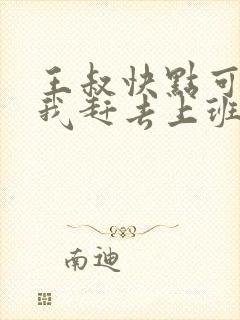 王叔快點可
我赶去上班
南迪